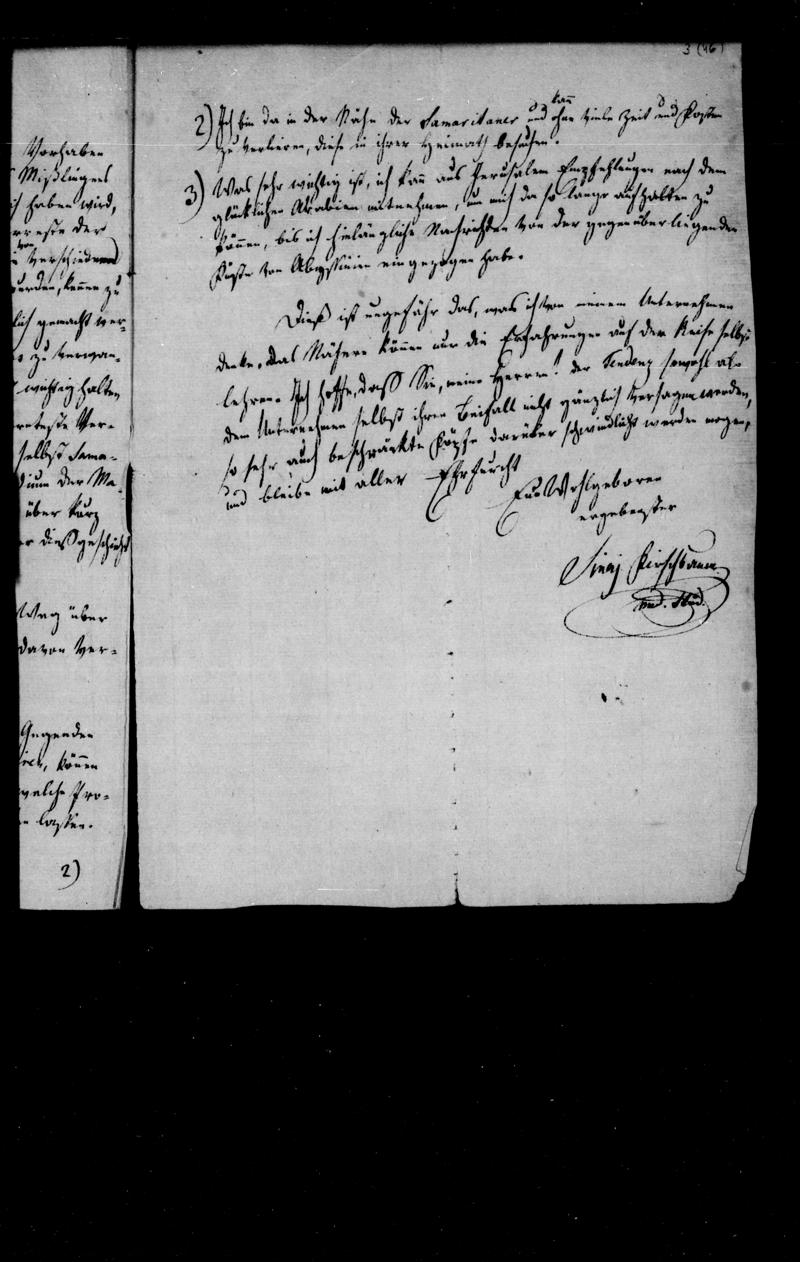 Vorhaben
Mißlingens
ich haben wird,
der
von
verschiedenen
wurden, kennen zu
lich gemacht wer-
zu verwan-
wichtig halten
Ver-
selbst Sama-
dium der Ma-
über kurz
er dieß geschieht
Weg über
davon ver-
Gegenden
können
welche Pro-
lassen.
2)
3 (46)
kann
2) Ich bin da in der Nähe der Samaritaner und ohne viele Zeit und Kosten
zu verlieren, diese in ihrer Heimath besuchen.
3) Was sehr wichtig ist, ich kann aus Jerusalem Empfehlungen nach dem
glücklichen Arabien mitnehmen, um mich da so lange aufhalten zu
können, bis ich hinlängliche Nachrichten von der gegenüberliegenden
Küste von Abyssinien eingezogen habe.
Dieß ist ungefähr das, was ich von meinem Unternehmen
denke, das Nähere können nur die Erfahrungen auf der Reise selbst
lehren. Ich hoffe, daß Sie, meine Herren! der Tendenz sowohl als
dem Unternehmen selbst ihren Beifall nicht gänzlich versagen werden,
so sehr auch beschränkte Köpfe darüber schwindlicht werden mögen,
und bleibe mit aller Ehrfurcht
Eur Wohlgeboren
ergebenster
Sinaj Kirschbaum
med. Stud.